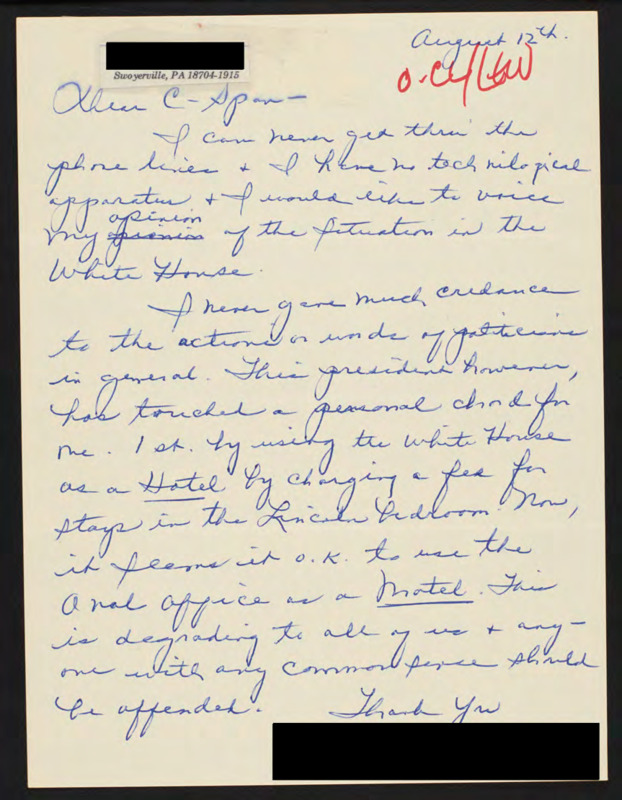 August 12th.
Swoyerville, PA 18704-1915
Dear C-Span-
I can never get thru the
phone lines + I have no technilogical
apparatus, + I would like to voice
opinion
my opinion of the situation in the
White House.
I never gave much credance
to the actions or words of politicians
in general. This president however,
has touched a personal chord for
me. 1st. by using the White House
as a Hotel by charging a fee for
stays in the Lincoln bedroom. Now,
it seems it o.k. to use the
Oval Office as a Motel. This
is degrading to all of us + any-
one with any common sense should
be offended.
Thank You